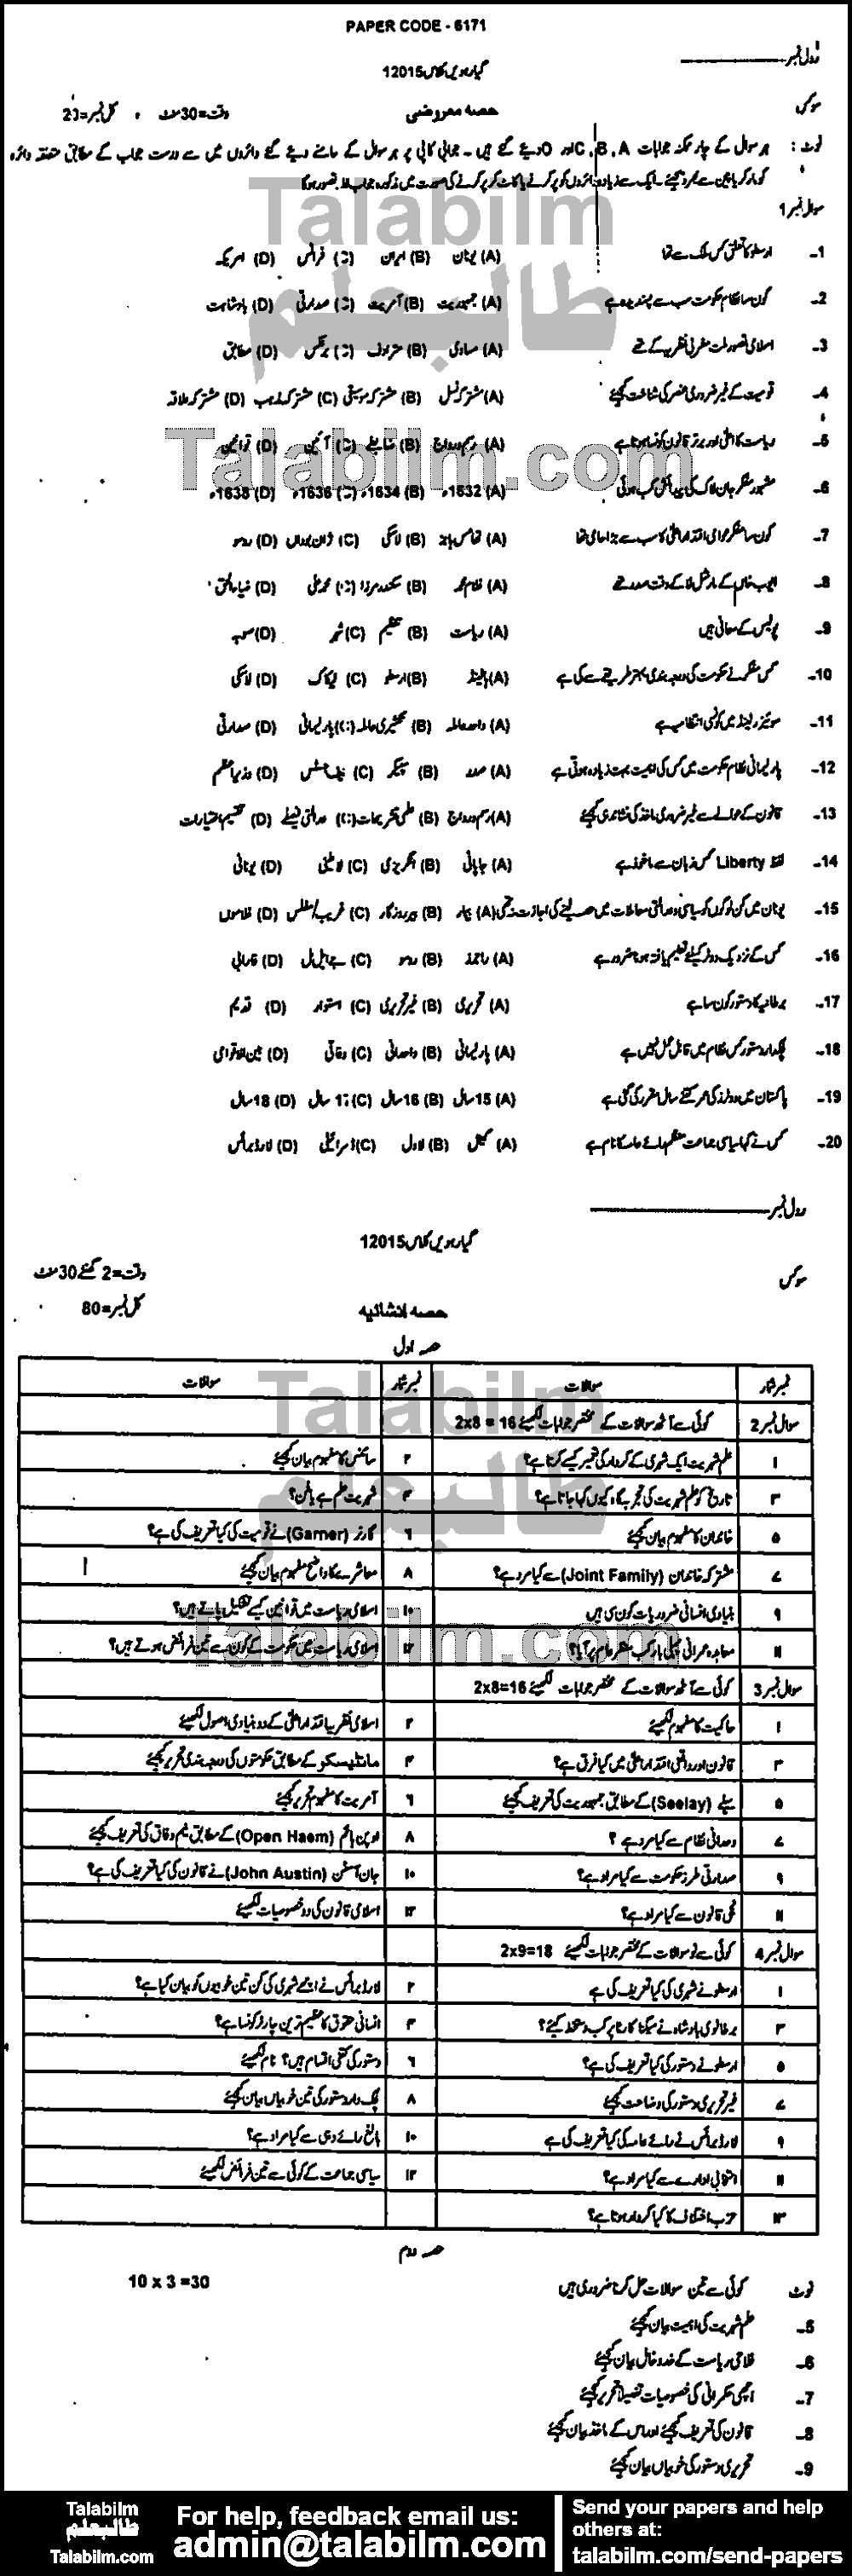 PAPER CODE - 6171
رول نمبر
گیارہویں کلاس 12015
سوکس
حصہ معروضی
وقت=30 منٹ ، کل نمبر=20
نوٹ : ہر سوال کے چار ممکنہ جوابات C, B, A اور D دیے گئے ہیں ۔ جوابی کاپی پر ہر سوال کے سامنے دیے گئے دائروں میں سے درست جواب کے مطابق متعلقہ دائرہ
کو مارکر یا پین سے بھر دیجئے۔ ایک سے زیادہ دائروں کو پر کرنے یا کاٹ کر پر کرنے کی صورت میں مذکورہ جواب غلط تصور ہوگا
سوال نمبر 1
1- ارسطو کا تعلق کس ملک سے تھا (A) یونان (B) ایران (C) فرانس (D) امریکہ
2- کون سا نظام حکومت سب سے پسندیدہ ہے (A) جمہوریت (B) آمریت (C) صدارتی (D) بادشاہت
3- اسلامی تصور ملت مغربی نظریے کے ہے (A) مساوی (B) مترادف (C) برعکس (D) مطابق
4- قومیت کے غیر ضروری عنصر کی شناخت کیجئے (A) مشترکہ نسل (B) مشترکہ موسیقی (C) مشترکہ مذہب (D) مشترکہ علاقہ
5- ریاست کا اعلیٰ اور برتر قانون کونسا ہوتا ہے (A) رسم و رواج (B) ضابطے (C) آئین (D) قوانین
6- مشہور مفکر جان لاک کی پیدائش کب ہوئی (A) 1632ء (B) 1634ء (C) 1636ء (D) 1638ء
7- کون سا مفکر عوامی اقتدار اعلیٰ کا سب سے بڑا حامی تھا (A) تھامس ہابز (B) لاسکی (C) ژاں بوداں (D) روسو
8- ایوب خاں کے مارشل لاء کے وقت صدر تھے (A) غلام محمد (B) سکندر مرزا (C) محمد علی (D) ضیاءالحق
9- پولیس کے معانی ہیں (A) ریاست (B) تنظیم (C) شہر (D) صوبہ
10- کس مفکر نے حکومت کی درجہ بندی بہتر طریقے سے کی ہے (A) ہالینڈ (B) ارسطو (C) لیکاک (D) لاسکی
11- سوئٹزرلینڈ میں کونسی انتظامیہ ہے (A) واحد عاملہ (B) تکثیری عاملہ (C) پارلیمانی (D) صدارتی
12- پارلیمانی نظام حکومت میں کس کی اہمیت بہت زیادہ ہوتی ہے (A) صدر (B) سپیکر (C) چیف جسٹس (D) وزیراعظم
13- قانون کے حوالے سے غیر ضروری ماخذ کی نشاندہی کیجئے (A) رسم و رواج (B) علمی تشریحات (C) عدالتی فیصلے (D) تقسیم اختیارات
14- لفظ Liberty کس زبان سے اخذ ہے (A) جاپانی (B) انگریزی (C) لاطینی (D) یونانی
15- یونان میں کن لوگوں کو سیاسی و عدالتی معاملات میں حصہ لینے کی اجازت نہ تھی (A) بیمار (B) بیروزگار (C) غریب/مفلس (D) غلاموں
16- کس کے نزدیک ووٹر کیلئے تعلیم یافتہ ہونا ضروری ہے (A) (B) روسو (C) جے ایس مل (D) فارابی
17- برطانیہ کا دستور کون سا ہے (A) تحریری (B) غیر تحریری (C) استوار (D) قدیم
18- لچکدار دستور کس نظام میں قابل عمل نہیں ہے (A) پارلیمانی (B) وحدانی (C) وفاقی (D) بین الاقوامی
19- پاکستان میں ووٹرز کی عمر کتنے سال مقرر کی گئی ہے (A) 15سال (B) 16سال (C) 17 سال (D) 18سال
20- کس نے کہا سیاسی جماعت منظم رائے عامہ کا نام ہے (A) گیٹل (B) لاول (C) ڈزرائیلی (D) لارڈ برائس
رول نمبر
گیارہویں کلاس 12015
سوکس
وقت=2 گھنٹے 30 منٹ
حصہ انشائیہ
کل نمبر=80
حصہ اول
نمبر شمار سوالات نمبر شمار سوالات
سوال نمبر 2 کوئی سے آٹھ سوالات کے مختصر جوابات لکھیئے 2x8 = 16
۱ علم شہریت ایک شہری کے کردار کی تعمیر کیسے کرتا ہے؟ ۲ سائنس کا مفہوم بیان کیجئے
۳ تاریخ کو علم شہریت کی تجربہ گاہ کیوں کہا جاتا ہے؟ ۴ شہریت علم ہے یا فن؟
۵ خاندان کا مفہوم بیان کیجئے ۶ گارنر (Garner) نے قومیت کی کیا تعریف کی ہے؟
۷ مشترکہ خاندان (Joint Family) سے کیا مراد ہے؟ ۸ معاشرے کا واضح مفہوم بیان کیجئے
۹ بنیادی انسانی ضروریات کون کی ہیں ۱۰ اسلامی ریاست میں قوانین کیسے تشکیل پاتے ہیں؟
۱۱ معاہدہ عمرانی پہلی بار کب منظر عام پر آیا؟ ۱۲ اسلامی ریاست میں حکومت کے کون سے تین فرائض ہوتے ہیں؟
سوال نمبر 3 کوئی سے آٹھ سوالات کے مختصر جوابات لکھیئے 2x8=16
۱ حاکمیت کا مفہوم لکھیئے ۲ اسلامی نظریہ اقتدار اعلیٰ کے دو بنیادی اصول لکھیئے
۳ قانون اور واقعی اقتدار اعلیٰ میں کیا فرق ہے؟ ۴ مانٹیسکو کے مطابق حکومتوں کی درجہ بندی تحریر کیجئے
۵ سیلے (Seelay) کے مطابق جمہوریت کی تعریف کیجئے ۶ آمریت کا مفہوم تحریر کیجئے
۷ وحدانی نظام سے کیا مراد ہے ؟ ۸ اوپن ہائم (Open Haem) کے مطابق نیم وفاق کی تعریف کیجئے
۹ صدارتی طرز حکومت سے کیا مراد ہے؟ ۱۰ جان آسٹن (John Austin) نے قانون کی کیا تعریف کی ہے؟
۱۱ نجی قانون سے کیا مراد ہے؟ ۱۲ اسلامی قانون کی دو خصوصیات لکھیئے
سوال نمبر 4 کوئی سے نو سوالات کے مختصر جوابات لکھیئے 2x9=18
۱ ارسطو نے شہری کی کیا تعریف کی ہے ۲ لارڈ برائس نے اچھے شہری کی کن تین خوبیوں کو بیان کیا ہے؟
۳ برطانوی بادشاہ نے میگنا کارٹا پر کب دستخط کیئے؟ ۴ انسانی حقوق کا عظیم ترین چارٹر کونسا ہے؟
۵ ارسطو نے دستور کی کیا تعریف کی ہے؟ ۶ دستور کی کتنی اقسام ہیں؟ نام لکھیئے
۷ غیر تحریری دستور کی وضاحت کیجئے ۸ لچک دار دستور کی تین خوبیاں بیان کیجئے
۹ لارڈ برائس نے رائے عامہ کی کیا تعریف کی ہے ۱۰ بالغ رائے دہی سے کیا مراد ہے؟
۱۱ انتخابی ادارے سے کیا مراد ہے؟ ۱۲ سیاسی جماعت کے کوئی سے تین فرائض لکھیئے
۱۳ حزب اختلاف کا کیا کردار ہوتا ہے؟
حصہ دوم
نوٹ کوئی سے تین سوالات حل کرنا ضروری ہیں 10 x 3 =30
5- علم شہریت کی اہمیت بیان کیجئے
6- فلاحی ریاست کے خدوخال بیان کیجئے
7- اچھی حکمرانی کی خصوصیات تفصیلاً تحریر کیجئے
8- قانون کی تعریف کیجئے اور اس کے ماخذ بیان کیجئے
9- تحریری دستور کی خوبیاں بیان کیجئے
Talabilm
طالبعلم
Talabilm.com
Talabilm
طالبعلم
Talabilm.com
Talabilm
طالبعلم
Talabilm.com
For help, feedback email us:
admin@talabilm.com
Send your papers and help
others at:
talabilm.com/send-papers